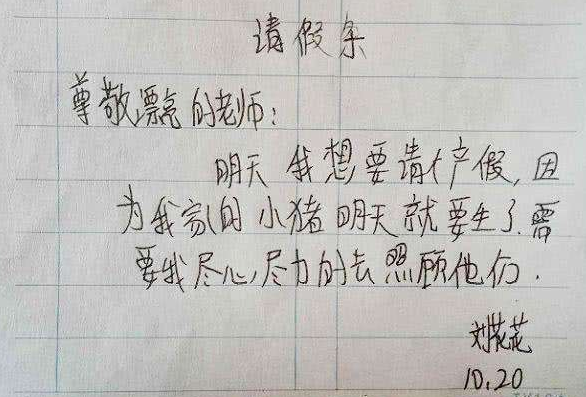 请假条
尊敬漂亮的老师:
明天我想要请个产假,因
为我家的小猪明天就要生了.需
要我尽心,尽力的去照顾他们.
刘花花
10.20